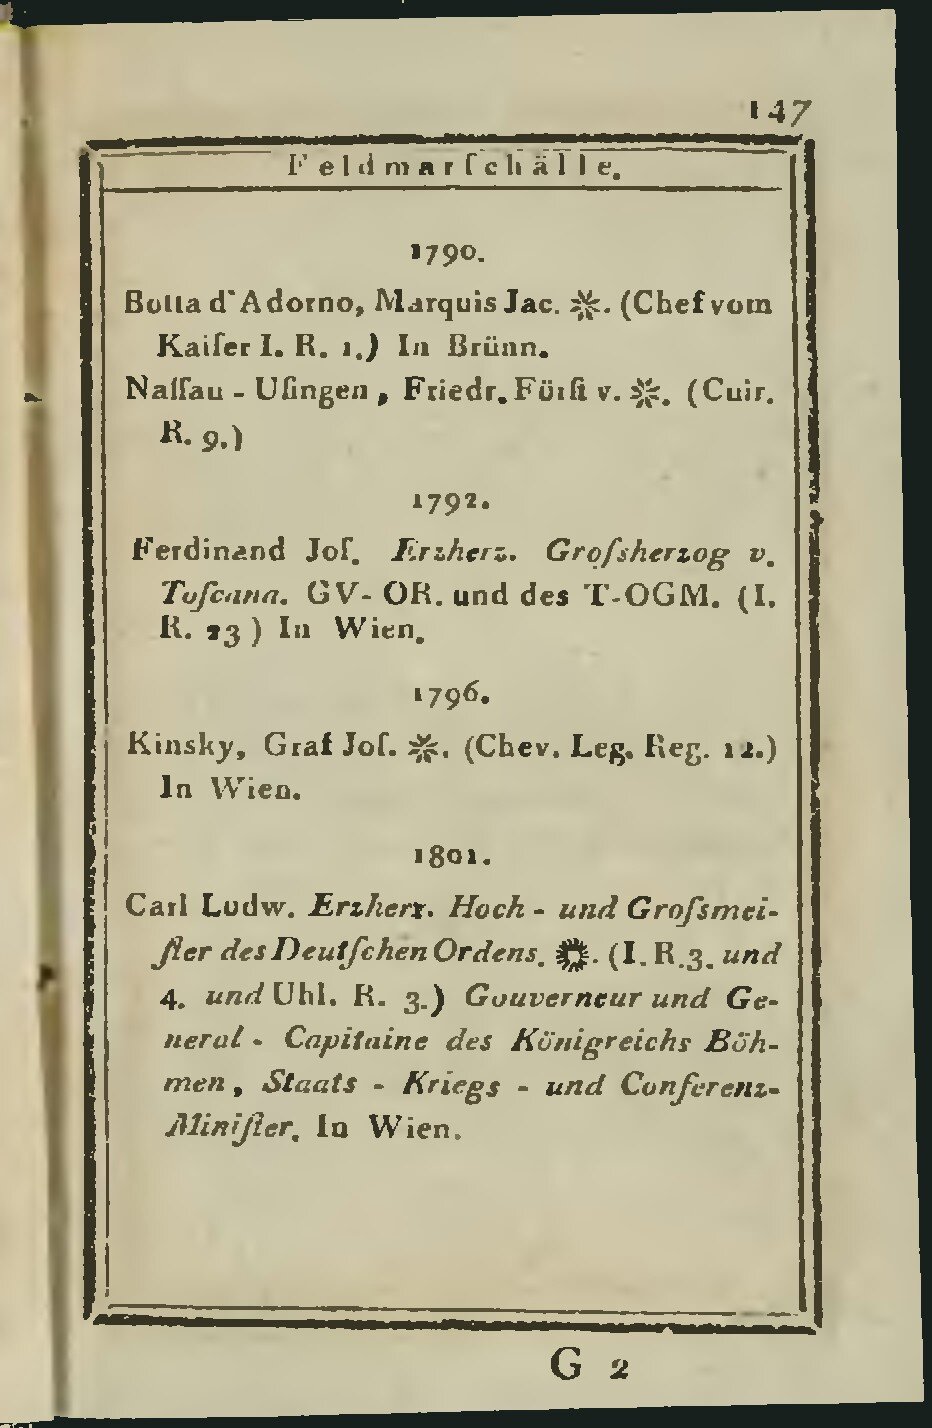 147
Feldmarſchälle.
1790.
Botta d'Adorno, Marquis Jac. ❋. (Chef vom
Kaiſer I. R. 1.) In Brünn.
Naſſau - Uſingen, Friedr. Fürſt v. ❋. (Cuir.
R. 9.)
1792.
Ferdinand Joſ. Erzherz. Groſsherzog v.
Toſcana. GV- OR. und des T-OGM. (I.
R. 23) In Wien.
1796.
Kinsky, Graf Joſ. ❋. (Chev. Leg. Reg. 12.)
In Wien.
1801.
Carl Ludw. Erzherz. Hoch - und Groſsmei-
ſter des Deutſchen Ordens. ❋. (I. R. 3. und
4. und Uhl. R. 3.) Gouverneur und Ge-
neral - Capitaine des Königreichs Böh-
men, Staats - Kriegs - und Conferenz-
Miniſter. In Wien.
G 2